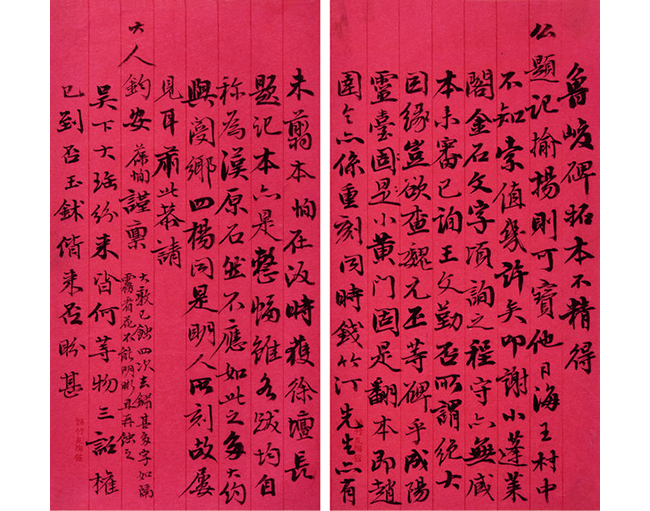 魯峻碑拓本不精得
公題記揄揚則可寶他日海王村中
不知索值幾許矣叩謝小蓬萊
閣金石文字項詢之程守亦無咸
本未審已詢王文勤否所謂絕大
因緣豈欲查魏元丕等碑乎成陽
靈臺固是小黃門固是翻本即趙
圉令亦係重刻同時錢竹汀先生亦有
未翦本怕在汳時獲徐壇長
題記本亦是整幅雖各跋均自
称為漢原石然不應如此之多大約
與閿鄉四楊同是明人所刻故屢
見耳肅此恭請
大人鈞安 謹稟
大敦已蝕四次去銹甚多字如隔
霧看花不能明晰且再蝕之
吳下大瑤紛來皆何等物三詔權
已到否玉鉥偕来否盼甚